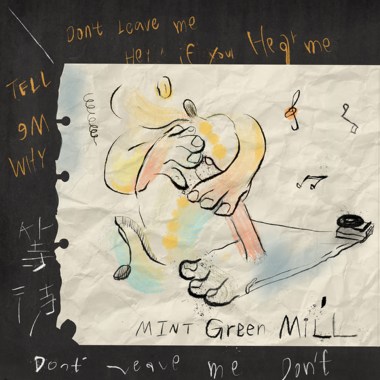 Don't Leave me
Help if you Hear me
TELL
ME
WHY
等
待
MINT Green MiLL
Dont Leave me Don't